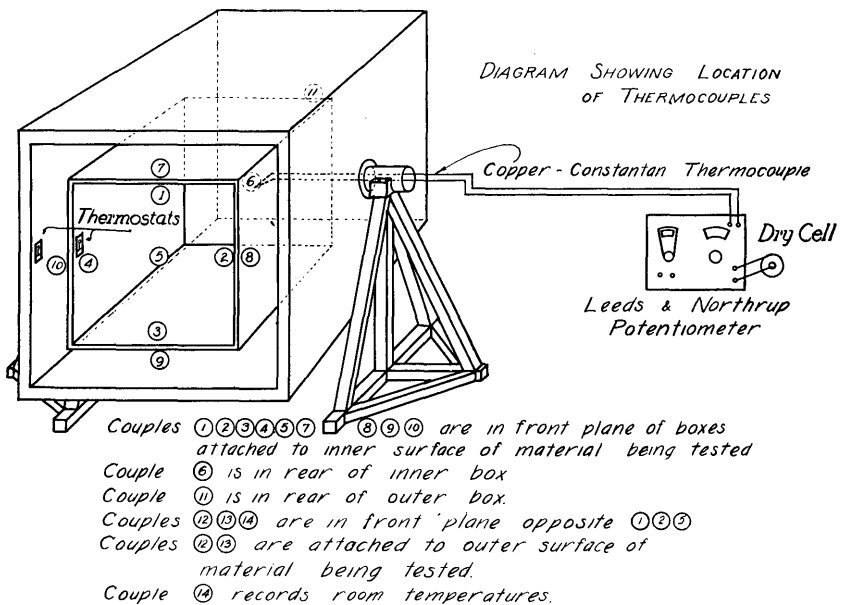 DIAGRAM SHOWING LOCATION
OF THERMOCOUPLES
⑪
⑦
①
⑥
Copper - Constantan Thermocouple
Thermostats
Dry Cell
⑩ ④ ⑤ ② ⑧
Leeds & Northrup
Potentiometer
③
⑨
Couples ①②③④⑤⑦ ⑧⑨⑩ are in front plane of boxes
attached to inner surface of material being tested
Couple ⑥ is in rear of inner box
Couple ⑪ is in rear of outer box.
Couples ⑫⑬⑭ are in front plane opposite ①②⑤
Couples ⑫⑬ are attached to outer surface of
material being tested.
Couple ⑭ records room temperatures.